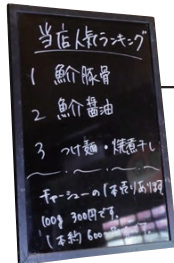 当店人気ランキング
1 魚介豚骨
2 魚介醤油
3 つけ麺・焼煮干し
チャーシューの1本売りあります
100g 300円です。
1本約600